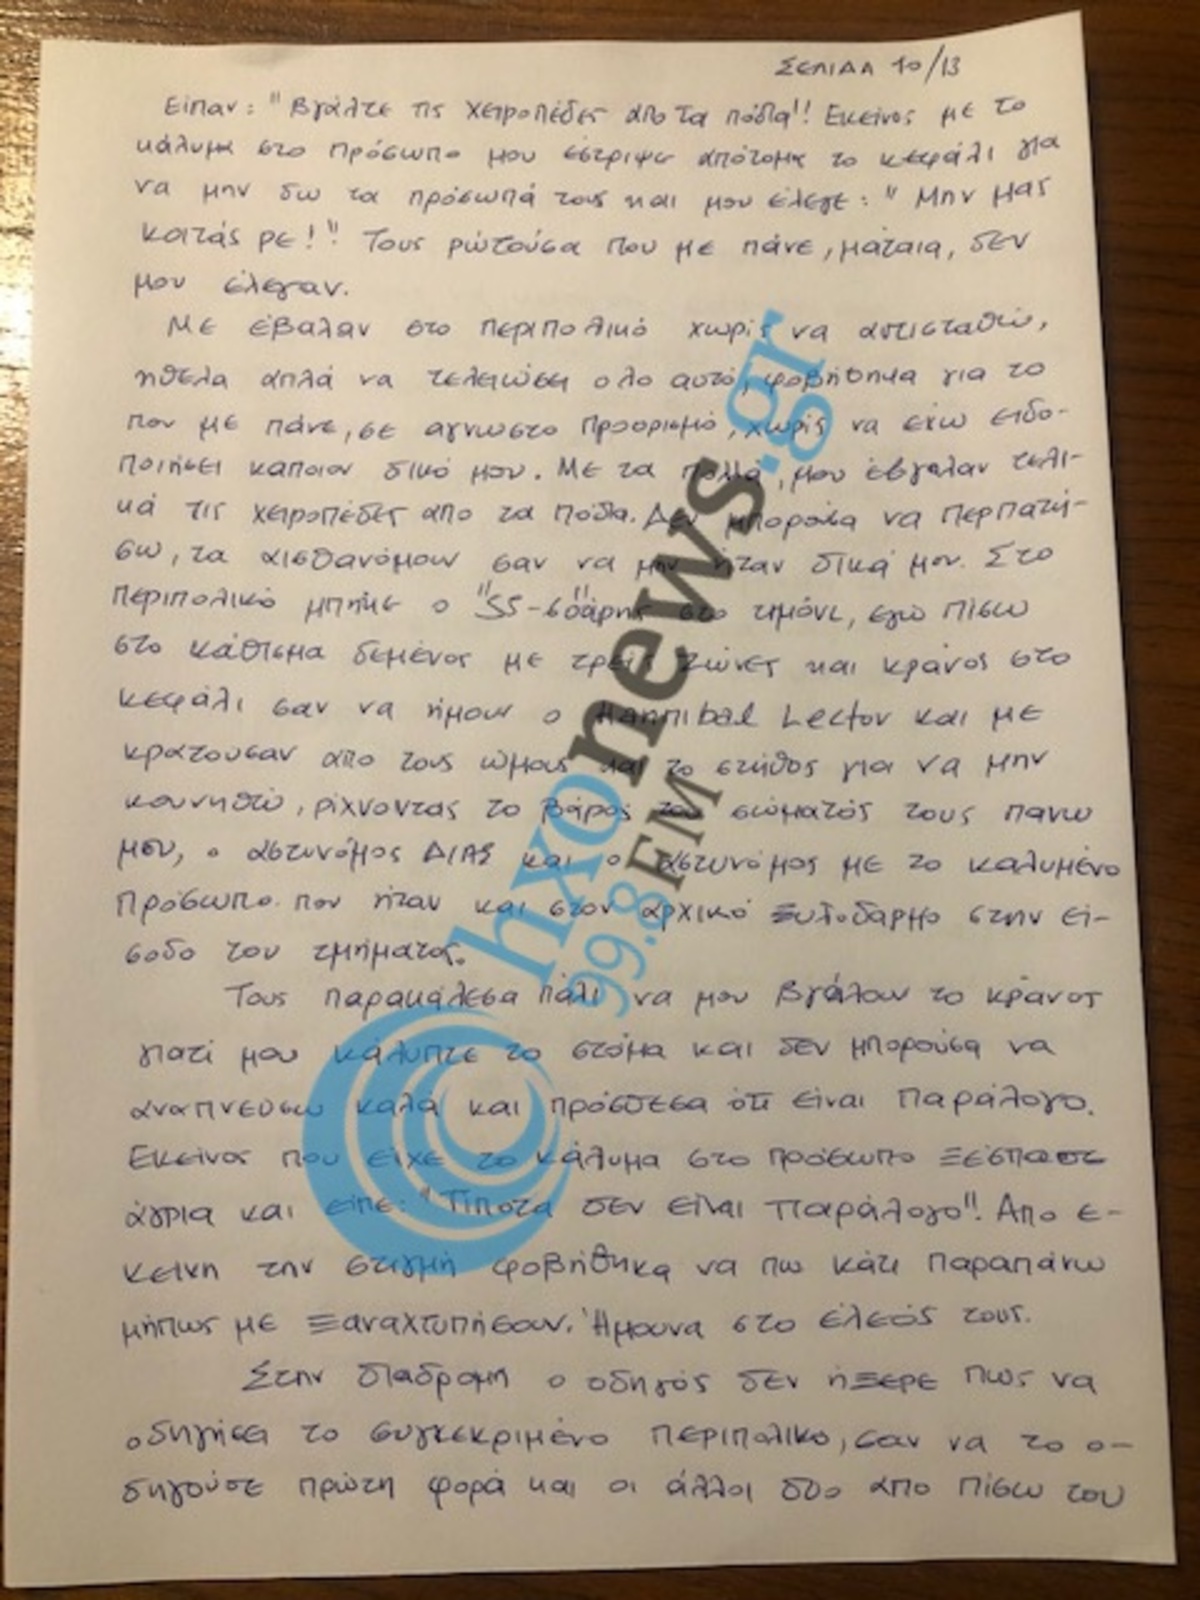 ΣΕΛΙΔΑ 10/13
Είπαν: "Βγάλτε τις χειροπέδες απο τα πόδια"! Εκείνος με το
κάλυμα στο πρόσωπο μου έστριψε απότομα το κεφάλι για
να μην δω τα πρόσωπά τους και μου έλεγε: "Μην μας
κοιτάς ρε!" Τους ρωτούσα που με πάνε, μάταια, δεν
μου έλεγαν.
Με έβαλαν στο περιπολικό χωρίς να αντισταθώ,
ήθελα απλά να τελειώσει ολο αυτό, φοβήθηκα για το
που με πάνε, σε αγνωστο προορισμό, χωρίς να εχω ειδο-
ποιήσει καποιον δικό μου. Με τα πολλά, μου έβγαλαν τελι-
κά τις χειροπέδες απο τα πόδια. Δεν μπορούσα να περπατή-
σω, τα αισθανόμουν σαν να μην ήταν δικά μου. Στο
περιπολικό μπήκε ο "SS-60άρης" στο τιμόνι, εγω πίσω
στο κάθισμα δεμένος με τρείς ζώνες και κράνος στο
κεφάλι σαν να ήμουν ο Hannibal Lector και με
κρατουσαν απο τους ώμους και το στήθος για να μην
κουνηθώ, ρίχνοντας το βάρος του σώματός τους πανω
μου, ο αστυνόμος ΔΙΑΣ και ο αστυνόμος με το καλυμένο
πρόσωπο που ήταν και στον αρχικό ξυλοδαρμο στην εί-
σοδο του τμήματος.
Τους παρακάλεσα πάλι να μου βγάλουν το κράνος
γιατί μου κάλυπτε το στόμα και δεν μπορούσα να
αναπνεύσω καλά και πρόσθεσα ότι είναι παράλογο.
Εκείνος που είχε το κάλυμα στο πρόσωπο ξέσπασε
άγρια και είπε: "Τίποτα δεν είναι παράλογο"! Απο ε-
κεινη την στιγμή φοβήθηκα να πω κάτι παραπάνω
μήπως με ξαναχτυπήσουν. Ήμουνα στο έλεός τους.
Στην διαδρομή ο οδηγός δεν ήξερε πως να
οδηγήσει το συγκεκριμένο περιπολικο, σαν να το ο-
δηγούσε πρώτη φορά και οι άλλοι δυο απο πίσω του
hxonews.gr
99.8 FM